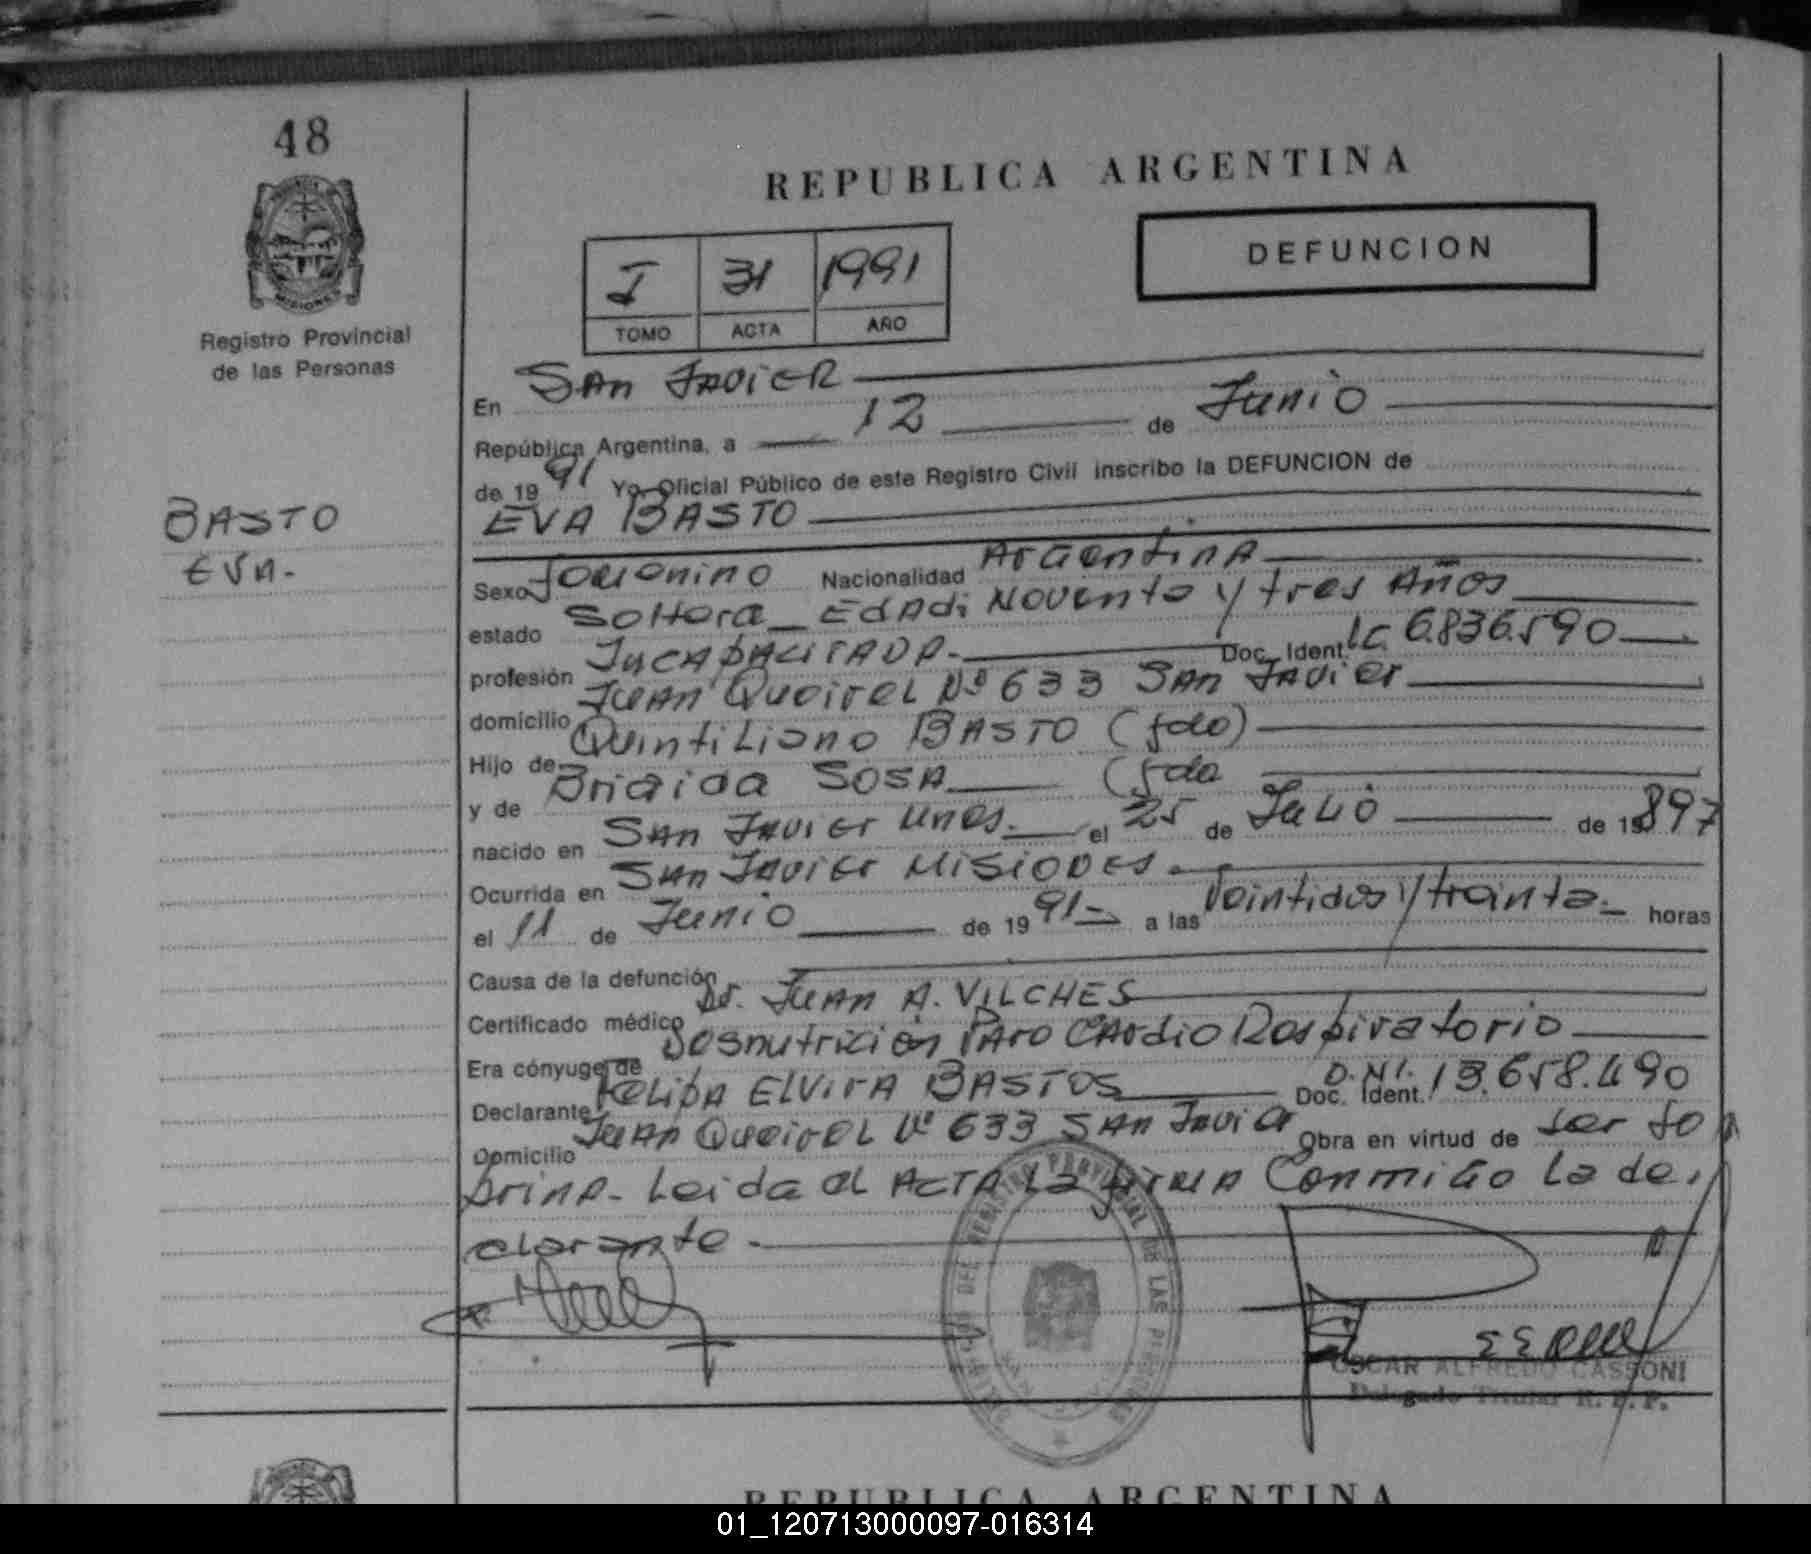 48
MISIONES
Registro Provincial
de las Personas
BASTO
EVA.
REPUBLICA ARGENTINA
I 31 1991
TOMO ACTA AÑO
DEFUNCION
En SAn JAviER
República Argentina, a 12 de Junio
de 1991 Yo Oficial Público de este Registro Civil inscribo la DEFUNCION de
EVA BASTO
Sexo femenino Nacionalidad ArgentinA
estado Soltera EDAD: Noventa y tres Años
profesión IncapacitADA. Doc. Ident. LC 6.836.590
domicilio JuAn Queirel Nº 633 SAn JAvier
Hijo de Quintiliano BASTO (fdo)
y de Brigida SOSA (fda
nacido en SAn JAvier Mnes. el 25 de Julio de 19897
Ocurrida en SAn JAvier MISIONES.
el 11 de Junio de 1991 a las Veintidos y treinta horas
Causa de la defunción
Certificado médico Dr. JuAn A. VILCHES
Era cónyuge de Desnutrición PAro CArdio Respiratorio
Declarante Felipa ELvirA BASTOS Doc. Ident. D.N.I. 13.658.490
Domicilio JuAn Queirel Nº 633 SAn JAvier Obra en virtud de ser so
brinA. Leida el ACTA La firmA Conmigo la de
clarante.
REGISTRO PROVINCIAL DE LAS PERSONAS
OSCAR ALFREDO CASSONI
Delegado Titular R. P. P.
REPUBLICA ARGENTINA
01_120713000097-016314